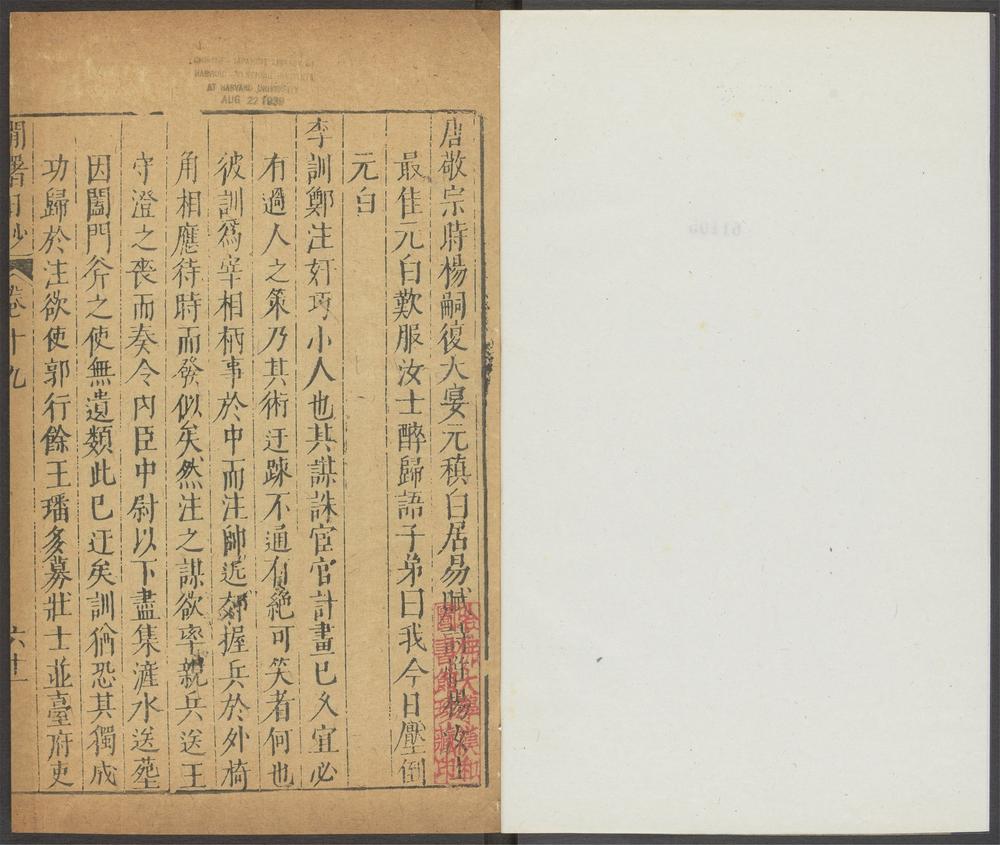 唐敬宗時楊嗣復大宴元稹白居易賦詩惟楊汝士
最佳元白歎服汝士醉歸語子弟曰我今日壓倒
元白
李訓鄭注奸巧小人也其謀誅宦官計畫已久宜必
有過人之策乃其術迂踈不通有絕可笑者何也
彼訓爲宰相柄事於中而注帥近郊握兵於外椅
角相應待時而發似矣然注之謀欲率親兵送王
守澄之喪而奏令内臣中尉以下盡集滻水送葬
因闔門斧之使無遺類此已迂矣訓猶恐其獨成
功歸於注欲使郭行餘王璠多募壯士並臺府吏
閒署日抄 卷十九 六十
哈佛大學漢和
圖書館珍藏印
CHINESE - JAPANESE LIBRARY OF
HARVARD - YENCHING INSTITUTE
AT HARVARD UNIVERSITY
AUG 22 1939
61105